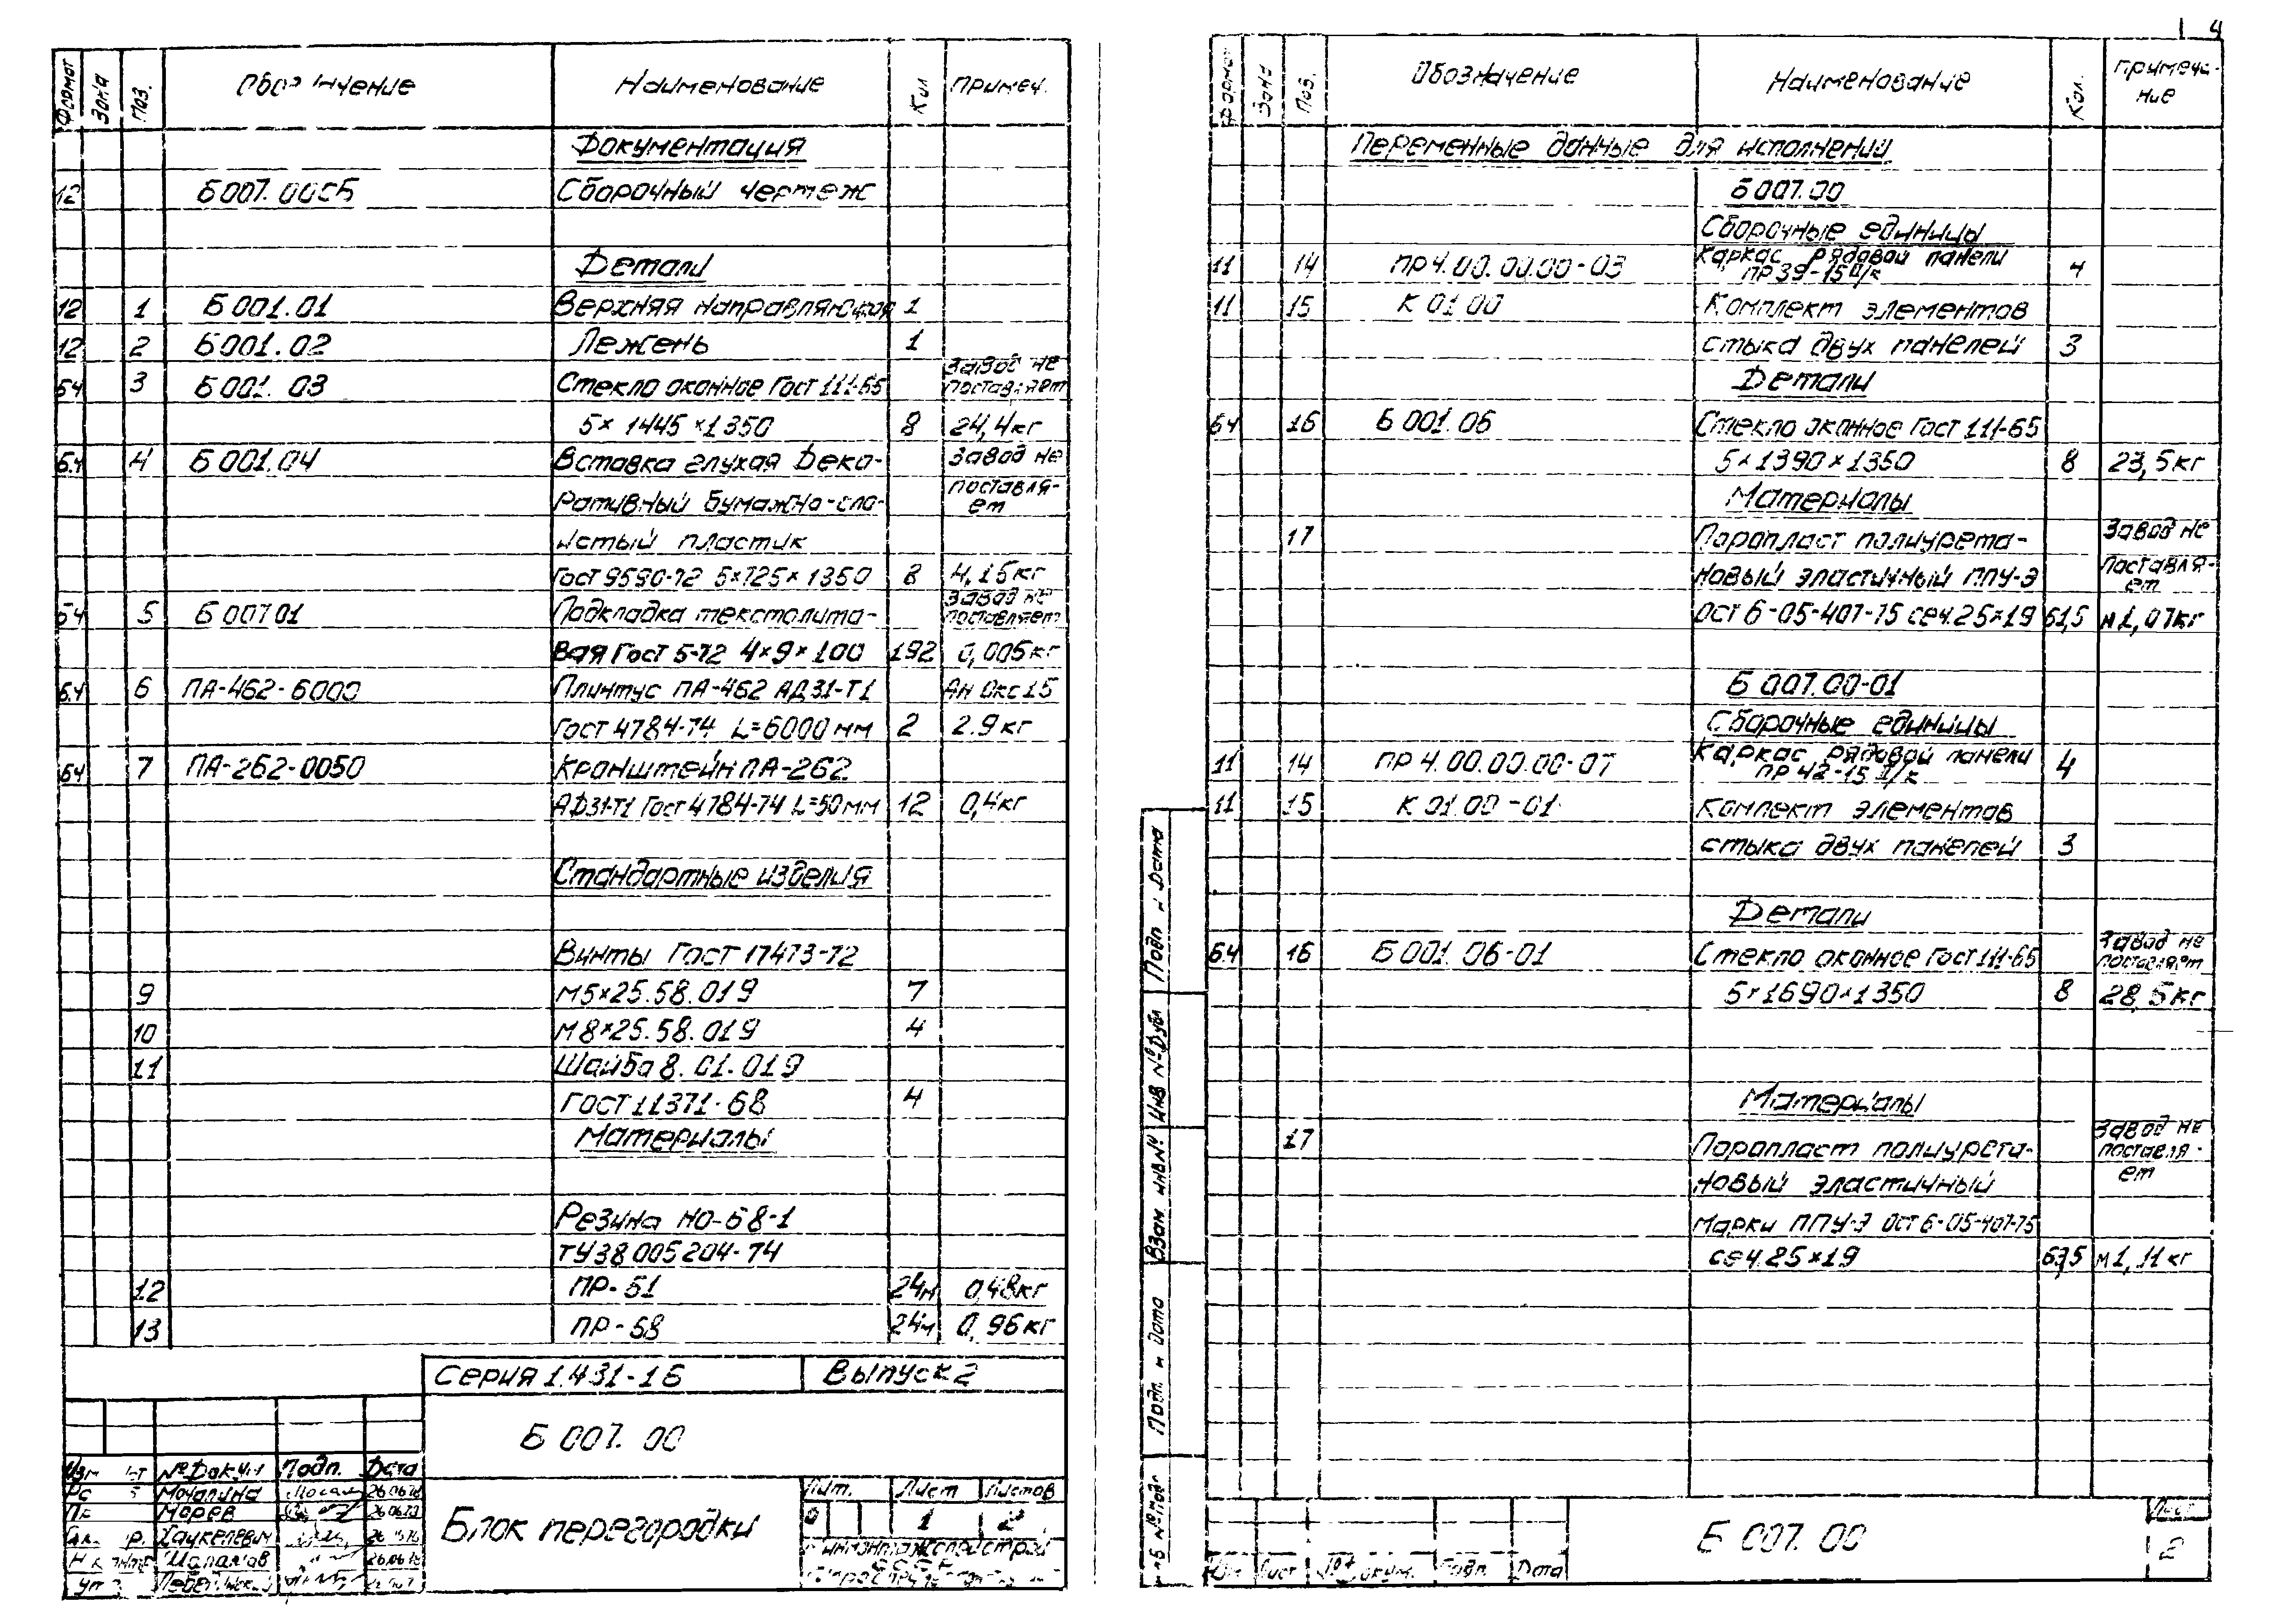 4
Формат Зона Поз. Обозначение Наименование Кол Примеч.
Документация
12 Б 007.00СБ Сборочный чертеж
Детали
12 1 Б 001.01 Верхняя направляющая 1
12 2 Б 001.02 Лежень 1
Завод не
БЧ 3 Б 001.03 Стекло оконное Гост 111-65 поставляет
5×1445×1350 8 24,4кг
БЧ 4 Б 001.04 Вставка глухая Деко- Завод не
ративный бумажно-сло- поставля-
ет
истый пластик
Гост 9590-72 5×725×1350 8 4,15кг
Завод не
БЧ 5 Б 00701 Подкладка текстолито- поставляет
вая Гост 5-72 4×9×100 192 0,005кг
БЧ 6 ПА-462-6000 Плинтус ПА-462 АД31-Т1 Ан Окс15
Гост 4784-74 L=6000мм 2 2.9кг
БЧ 7 ПА-262-0050 Кронштейн ПА-262
АД31-Т1 Гост 4784-74 L=50мм 12 0,4кг
Стандартные изделия
Винты Гост 17473-72
9 М5×25.58.019 7
10 М8×25.58.019 4
11 Шайба 8.01.019
Гост 11371-68 4
Материалы
Резина НО-68-1
ТУ38 005204-74
12 ПР-51 24м 0,48кг
13 ПР-68 24м 0,96кг
Серия 1.431-16 Выпуск 2
Б 007.00
№ Докум Подп. Дата
Мочалина
Морев
Хаукелевич
Блок перегородки
Лит. Лист Листов
Р 1 2
Формат Зона Поз. Обозначение Наименование Кол. Примеча-
ние
Переменные данные для исполнений
Б 007.00
Сборочные единицы
11 14 ПР4.00.00.00-03 Каркас рядовой панели 4
ПР39-15П/к
11 15 К 01 00 Комплект элементов
стыка двух панелей 3
Детали
БЧ 16 Б 001.06 Стекло оконное Гост 111-65
5×1390×1350 8 23,5кг
Материалы
17 Поропласт полиурета- Завод не
новый эластичный ППУ-Э поставля-
ет
ОСТ 6-05-407-75 сеч.25×19 61,5 м 1,07кг
Б 007.00-01
Сборочные единицы
11 14 ПР 4.00.00.00-07 Каркас рядовой панели 4
ПР 42-15 П/к
11 15 К 01.00-01 Комплект элементов
стыка двух панелей 3
Детали
Завод не
БЧ 16 Б 001.06-01 Стекло оконное Гост 111-65 поставляет
5×1690×1350 8 28,5кг
Материалы
17 Поропласт полиурета- Завод не
поставля-
новый эластичный ет
марки ППУ-Э ОСТ 6-05-407-75
сеч.25×19 63,5 м 1,11кг
Подп и Дата
Инв №дубл
Взам инв№
Подп. и дата
Инв №подл
Б 007.00
Лист
2
Изм Лист №докум. Подп. Дата